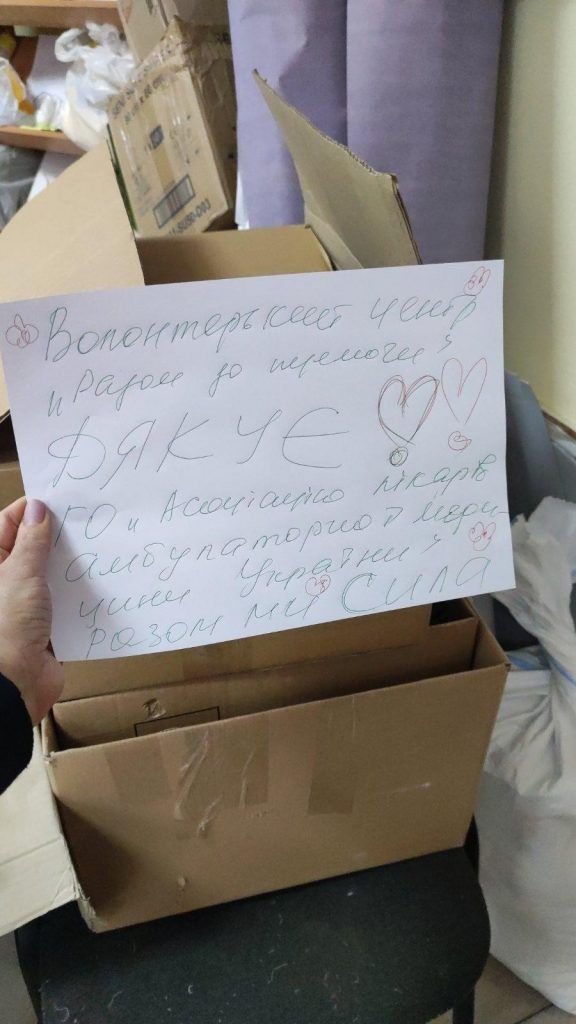 Волонтерський центр
"Разом до перемоги"
ДЯКУЄ
ГО "Асоціацію лікарів
амбулаторної меди-
цини України"
разом ми СИЛА